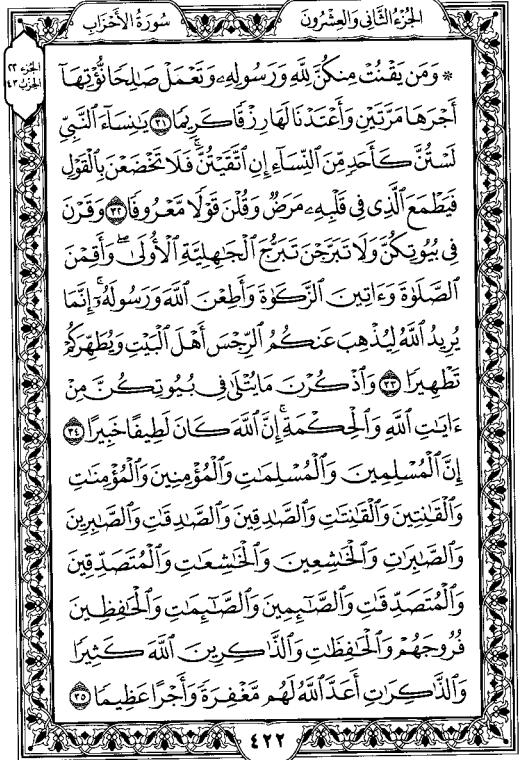 الجُزْءُ الثَّانِي وَالعِشْرُونَ
سُورَةُ الأَحْزَابِ
الجزء ٢٢
الحزب ٤٣
۞ وَمَن يَقْنُتْ مِنكُنَّ لِلَّهِ وَرَسُولِهِۦ وَتَعْمَلْ صَٰلِحًا نُّؤْتِهَآ
أَجْرَهَا مَرَّتَيْنِ وَأَعْتَدْنَا لَهَا رِزْقًا كَرِيمًا ٣١ يَٰنِسَآءَ ٱلنَّبِىِّ
لَسْتُنَّ كَأَحَدٍ مِّنَ ٱلنِّسَآءِ إِنِ ٱتَّقَيْتُنَّۚ فَلَا تَخْضَعْنَ بِٱلْقَوْلِ
فَيَطْمَعَ ٱلَّذِى فِى قَلْبِهِۦ مَرَضٌ وَقُلْنَ قَوْلًا مَّعْرُوفًا ٣٢ وَقَرْنَ
فِى بُيُوتِكُنَّ وَلَا تَبَرَّجْنَ تَبَرُّجَ ٱلْجَٰهِلِيَّةِ ٱلْأُولَىٰۖ وَأَقِمْنَ
ٱلصَّلَوٰةَ وَءَاتِينَ ٱلزَّكَوٰةَ وَأَطِعْنَ ٱللَّهَ وَرَسُولَهُۥٓۚ إِنَّمَا
يُرِيدُ ٱللَّهُ لِيُذْهِبَ عَنكُمُ ٱلرِّجْسَ أَهْلَ ٱلْبَيْتِ وَيُطَهِّرَكُمْ
تَطْهِيرًا ٣٣ وَٱذْكُرْنَ مَا يُتْلَىٰ فِى بُيُوتِكُنَّ مِنْ
ءَايَٰتِ ٱللَّهِ وَٱلْحِكْمَةِۚ إِنَّ ٱللَّهَ كَانَ لَطِيفًا خَبِيرًا ٣٤
إِنَّ ٱلْمُسْلِمِينَ وَٱلْمُسْلِمَٰتِ وَٱلْمُؤْمِنِينَ وَٱلْمُؤْمِنَٰتِ
وَٱلْقَٰنِتِينَ وَٱلْقَٰنِتَٰتِ وَٱلصَّٰدِقِينَ وَٱلصَّٰدِقَٰتِ وَٱلصَّٰبِرِينَ
وَٱلصَّٰبِرَٰتِ وَٱلْخَٰشِعِينَ وَٱلْخَٰشِعَٰتِ وَٱلْمُتَصَدِّقِينَ
وَٱلْمُتَصَدِّقَٰتِ وَٱلصَّٰٓئِمِينَ وَٱلصَّٰٓئِمَٰتِ وَٱلْحَٰفِظِينَ
فُرُوجَهُمْ وَٱلْحَٰفِظَٰتِ وَٱلذَّٰكِرِينَ ٱللَّهَ كَثِيرًا
وَٱلذَّٰكِرَٰتِ أَعَدَّ ٱللَّهُ لَهُم مَّغْفِرَةً وَأَجْرًا عَظِيمًا ٣٥
٤٢٢